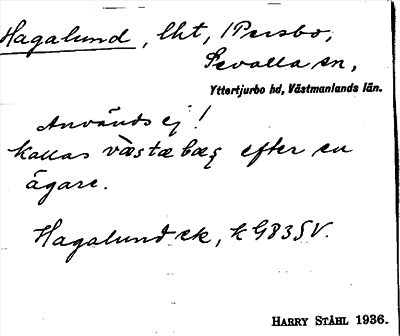 Hagalund, lht, i Persbo,
Sevalla sn,
Yttertjurbo hd, Västmanlands län.
Används ej!
Kallas västæbæς efter en
ägare.
Hagalund ek, k G83SV.
HARRY STÅHL 1936.